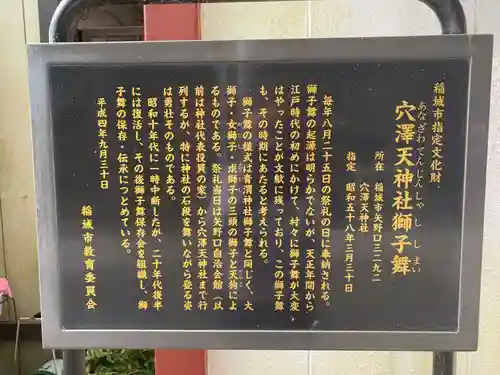 稲城市指定文化財
あなざわてんじんしゃししまい
穴澤天神社獅子舞
所在 稲城市矢野口三二九二
穴澤天神社
指定 昭和五十八年三月三十日
毎年八月二十五日の祭礼の日に奉納される。
獅子舞の起源は明らかでないが、天正年間から
江戸時代の初めにかけて、村々に獅子舞が大変
はやったことが文献に残っており、この獅子舞
も、その時期にあたると考えられる。
獅子舞の様式は青渭神社獅子舞と同じく、大
獅子・女獅子・求獅子の三頭の獅子と天狗によ
るものである。祭礼当日は矢野口自治会館（以
前は神社代表役員の家）から穴澤天神社まで行
列するが、特に神社の石段を舞いながら登る姿
は勇壮そのものである。
昭和十年代に一時中断したが、二十年代後半
には復活し、その後獅子舞保存会を組織し、獅
子舞の保存・伝承につとめている。
平成四年九月三十日
稲城市教育委員会